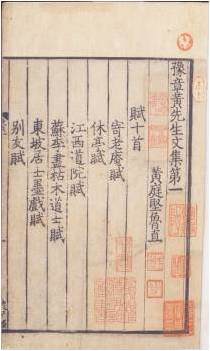 豫章黃先生文集第一
黃庭堅魯直
賦十首
寄老庵賦
休亭賦
江西道院賦
蘇李畫枯木道士賦
東坡居士墨戲賦
別友賦